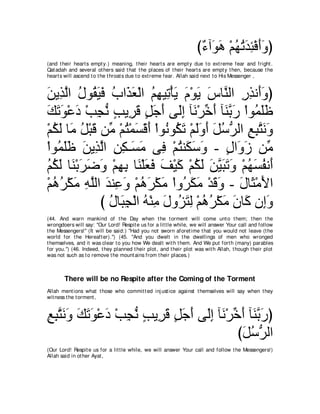 (وَأَفْئِدَتُهُمْ هَوَآءٌ)
(and their hearts empty) meaning, their hearts are empty due to extreme fear and fright.
Qatadah and several others said that the places of their hearts are empty then, because the
hearts will ascend to the throats due to extreme fear. Allah said next to His Messenger ,
(وَأَنذِرِ النَّاسَ يَوْمَ يَأْتِيهِمُ الْعَذَابُ فَيَقُولُ الَّذِينَ
ظَلَمُواْ رَبَّنَآ أَخِّرْنَآ إِلَى أَجَلٍ قَرِيبٍ نُّجِبْ دَعْوَتَكَ
وَنَتَّبِعِ الرُّسُلَ أَوَلَمْ تَكُونُواْ أَقْسَمْتُمْ مِّن قَبْلُ مَا لَكُمْ
مِّن زَوَالٍ - وَسَكَنتُمْ فِى مَسَكِنِ الَّذِينَ ظَلَمُواْ
أَنفُسَهُمْ وَتَبَيَّنَ لَكُمْ كَيْفَ فَعَلْنَا بِهِمْ وَضَرَبْنَا لَكُمُ
الاٌّمْثَالَ - وَقَدْ مَكَرُواْ مَكْرَهُمْ وَعِندَ اللَّهِ مَكْرُهُمْ
وَإِن كَانَ مَكْرُهُمْ لِتَزُولَ مِنْهُ الْجِبَالُ )
(44. And warn mankind of the Day when the torment will come unto them; then the
wrongdoers will say: "Our Lord! Respite us for a little while, we will answer Your call and follow
the Messengers!" (It will be said:) "Had you not sworn aforetime that you would not leave (the
world for the Hereafter).") (45. "And you dwelt in the dwellings of men who wronged
themselves, and it was clear to you how We dealt with them. And We put forth (many) parables
for you.") (46. Indeed, they planned their plot, and their plot was with Allah, though their plot
was not such as to remove the mountains from their places.)
There will be no Respite after the Coming of the Torment
Allah mentions what those who committed injustice against themselves will say when they
witness the torment,
(رَبَّنَآ أَخِّرْنَآ إِلَى أَجَلٍ قَرِيبٍ نُّجِبْ دَعْوَتَكَ وَنَتَّبِعِ
الرُّسُلَ)
(Our Lord! Respite us for a little while, we will answer Your call and follow the Messengers!)
Allah said in other Ayat,